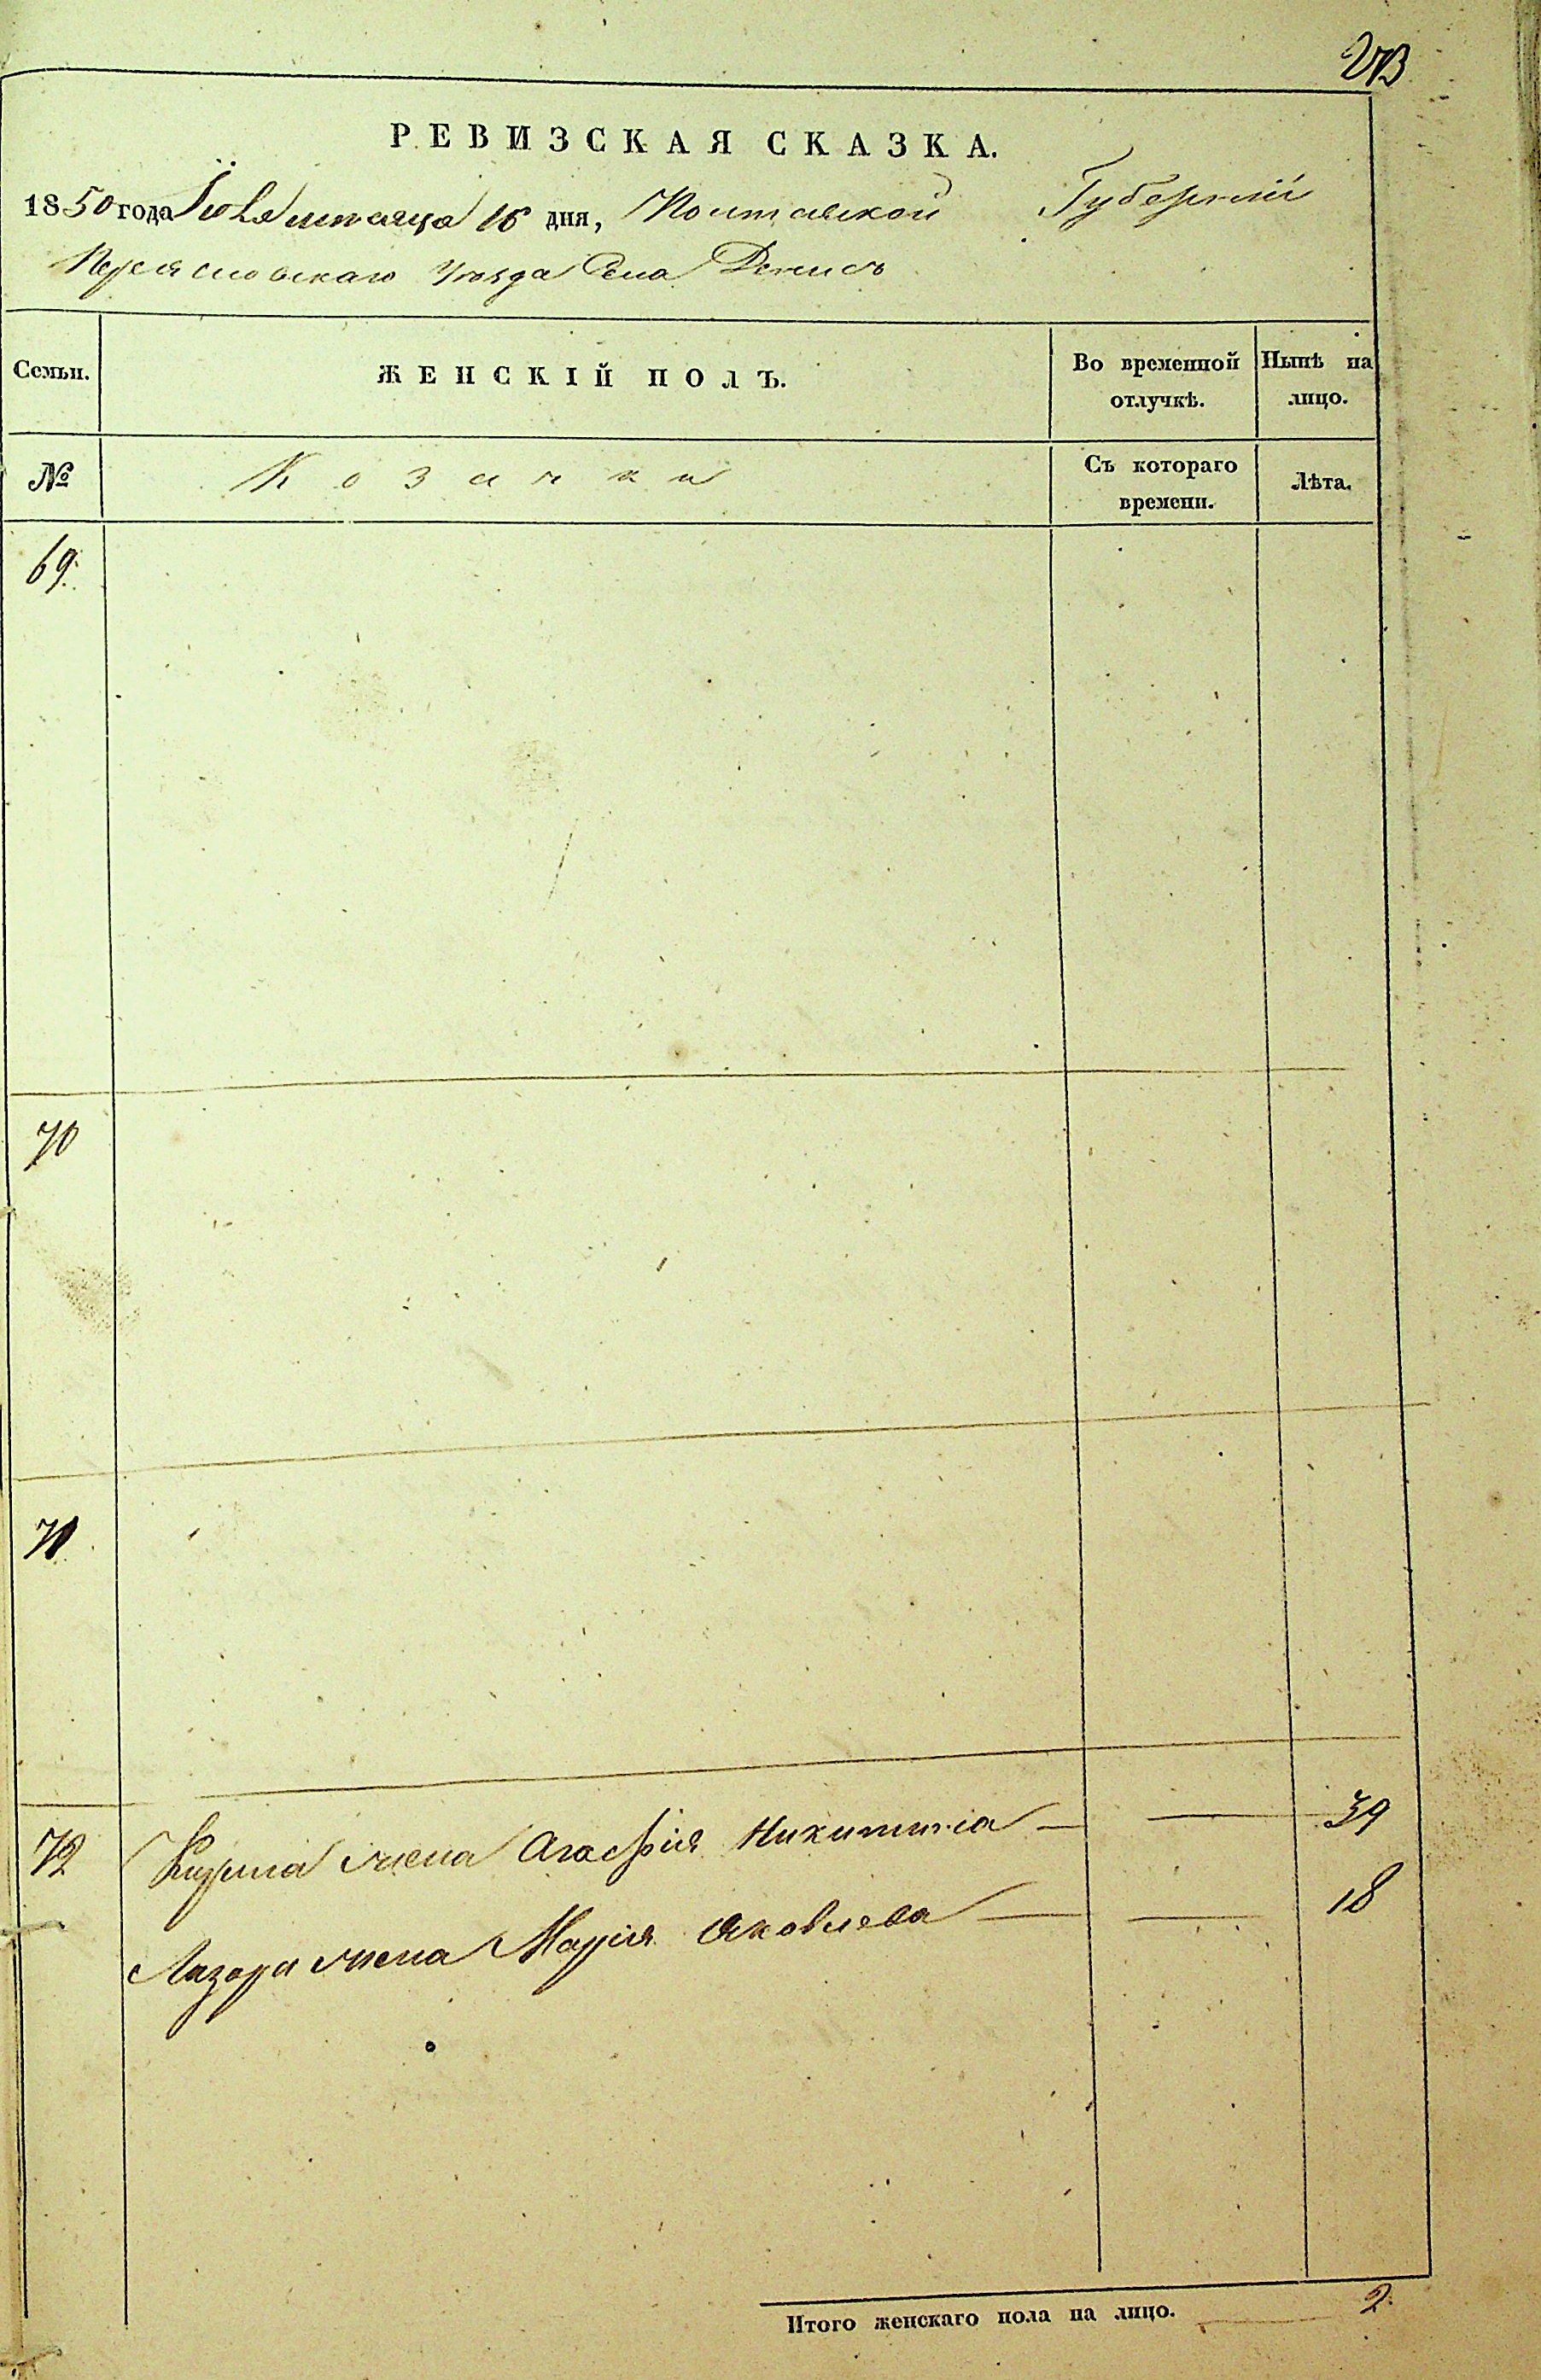 273
РЕВИЗСКАЯ СКАЗКА.
1850 года Іюля мѣсяца 16 дня, Полтавской Губерніи
Переясловскаго Уѣзда Села Денисъ
Семьи. ЖЕНСКІЙ ПОЛЪ. Во временной отлучкѣ. Нынѣ на лицо.
№ Козачки Съ котораго времени. Лѣта.
69.
70
71
72 Кузьма жена Агафія Никитина — — 39
Лазаря жена Марія Яковлева — — 18
Итого женскаго пола на лицо. 2.